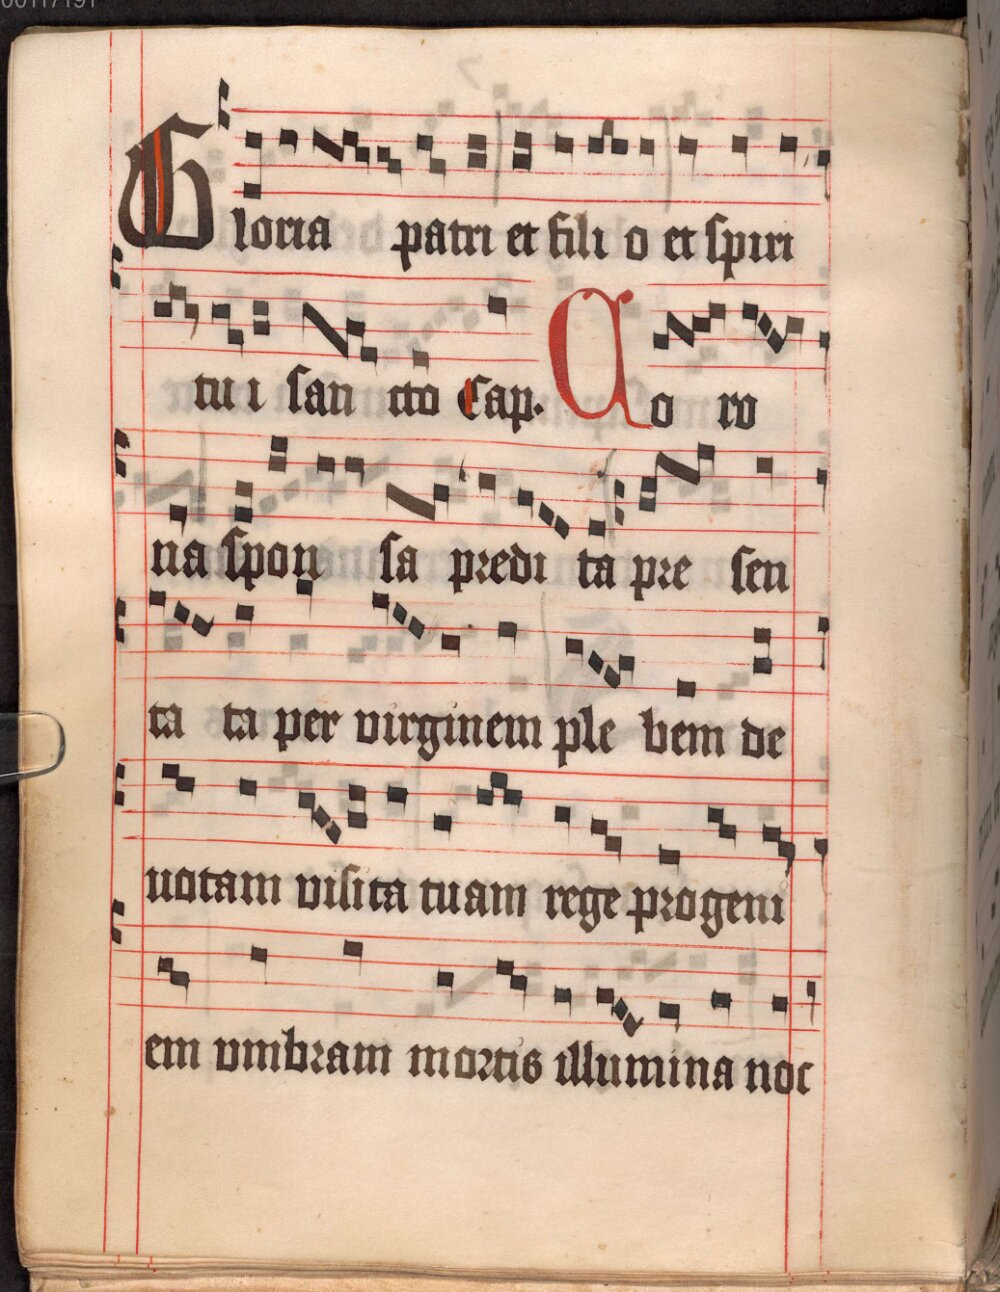 00117191
Gloria patri et fili o et spiri
tu i san cto Cap. Co ro
na spon sa predi ta pre sen
ta ta per virginem ple bem de
uotam visita tuam rege progeni
em vmbram mortis illumina noc